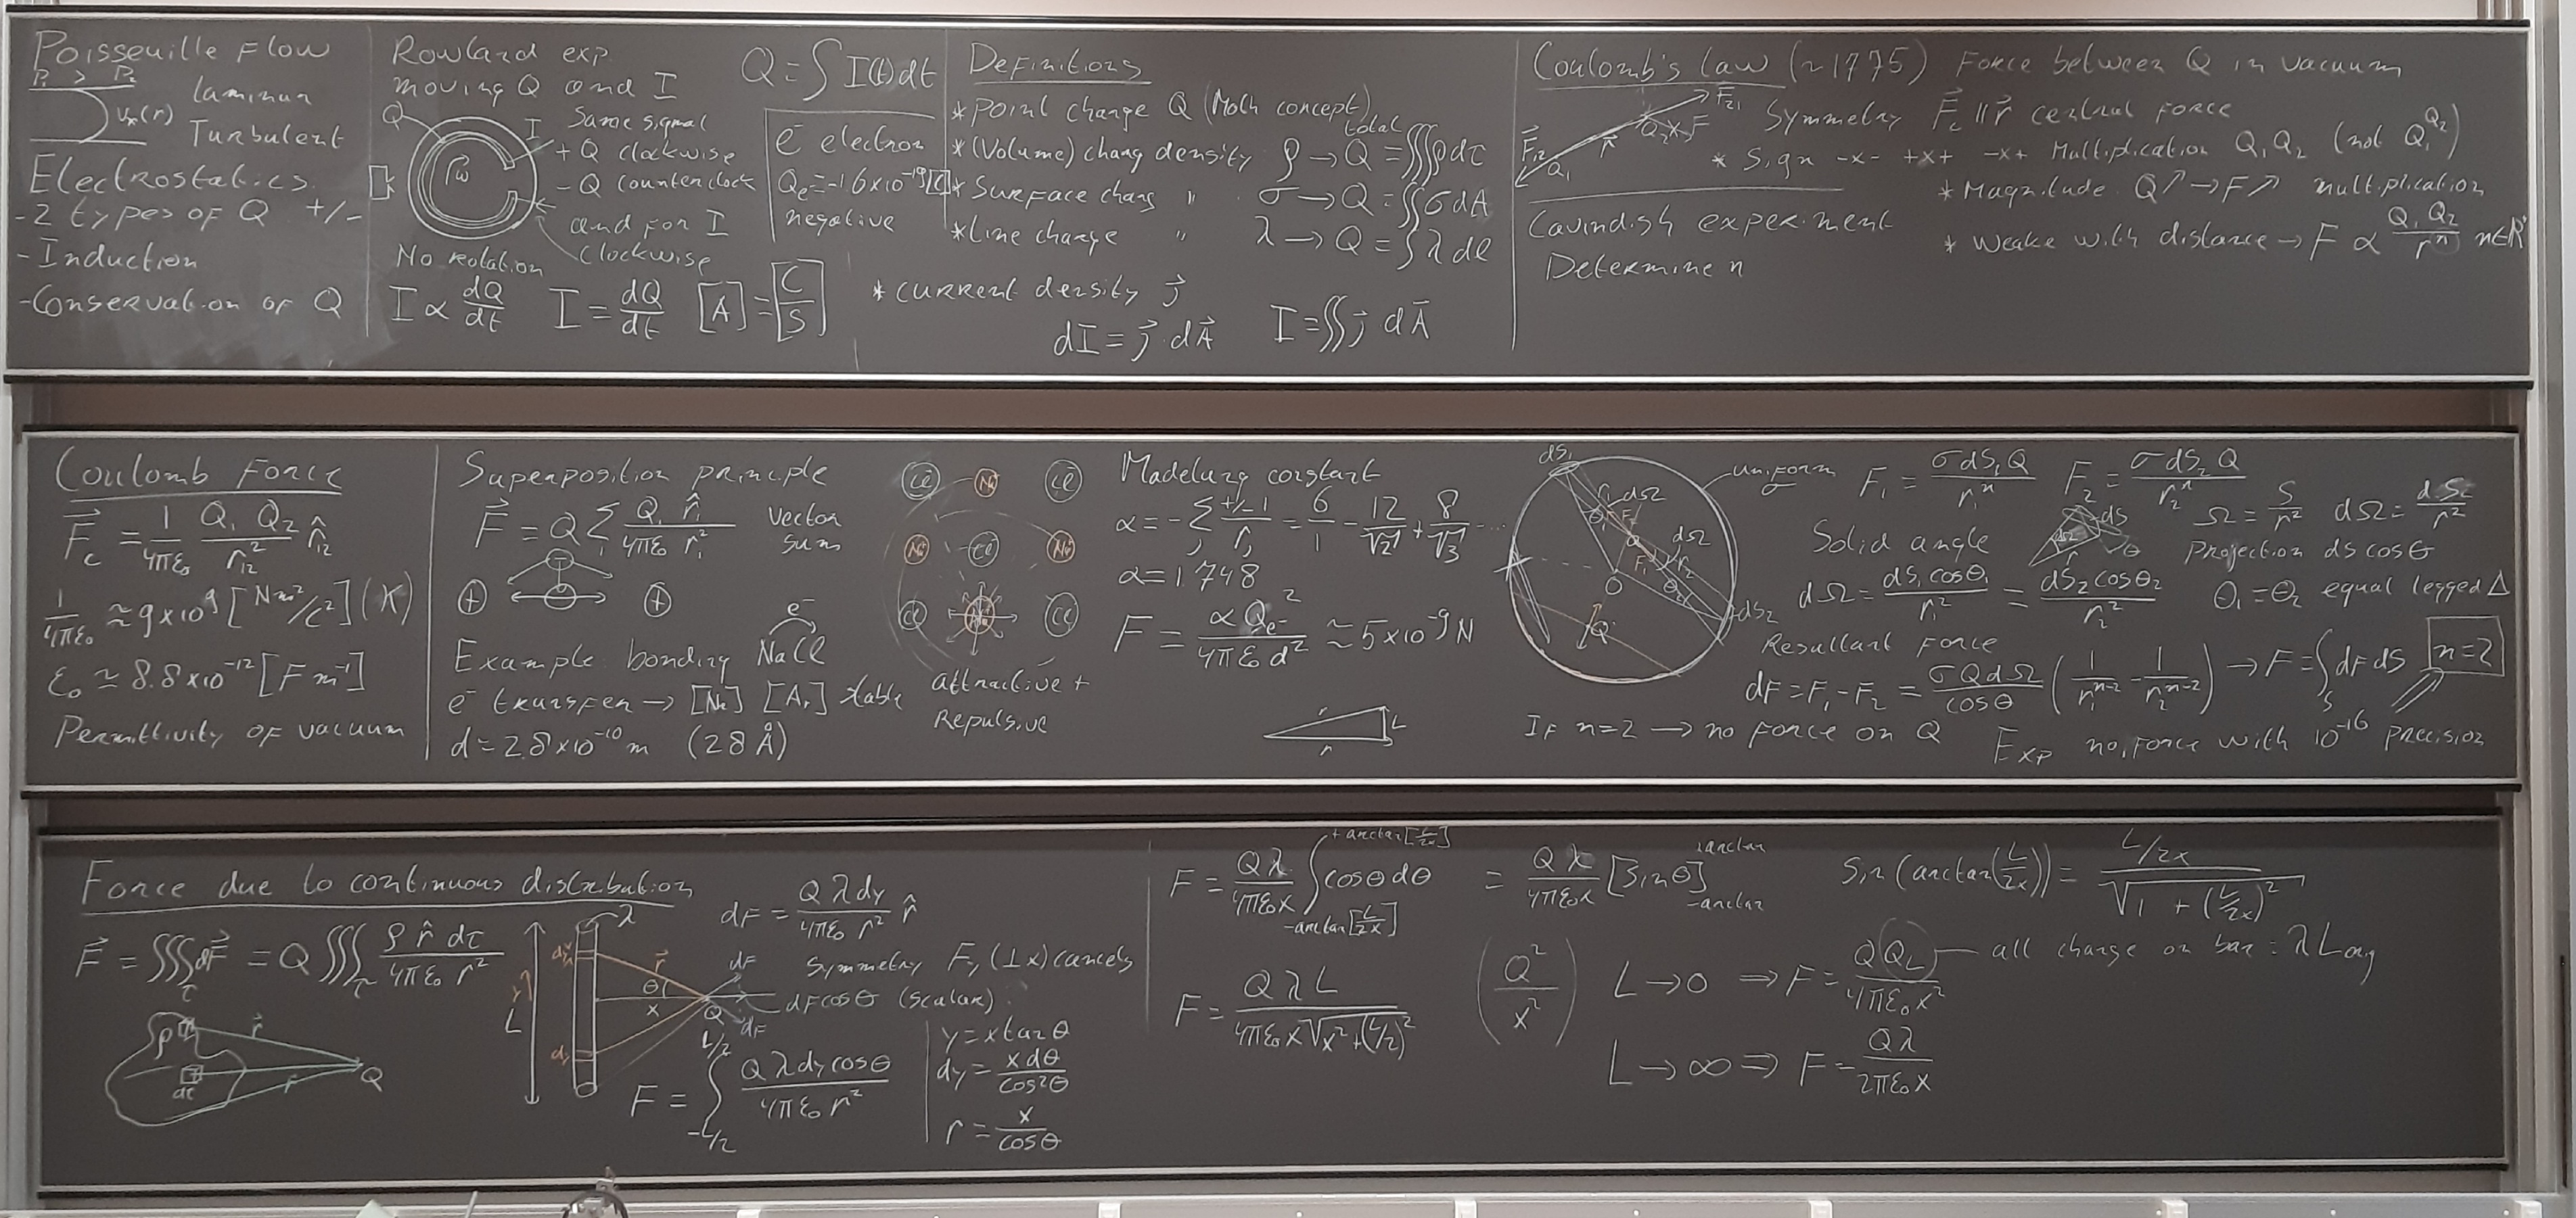 Poisseuille Flow
P₁ > P₂
Laminar
vₓ(r)
Turbulent
Electrostatics
- 2 types of Q +/-
- Induction
- Conservation of Q
Rowland exp
moving Q and I
Q
I
ω
Same signal
+ Q clockwise
- Q counterclock
and for I
clockwise
No rotation
I ∝ dQ/dt I = dQ/dt [A] = [C/S]
Q = ∫ I(t) dt
e⁻ electron
Qe = -1.6×10⁻¹⁹ [C]
negative
Definitions
* Point charge Q (Math concept)
total
* (Volume) charg density ρ → Q = ∭ρdτ
* Surface charg " σ → Q = ∬σdA
* Line charge " λ → Q = ∫λdl
* current density j⃗
dI = j⃗·dA⃗ I = ∬ j⃗ dA⃗
Coulomb's law (~1775) Force between Q in vacuum
F⃗₂₁
F⃗₁₂ Q₁ r⃗ Q₂
Symmetry F⃗c ∥ r⃗ central force
* Sign -x- +x+ -x+ Multiplication Q₁Q₂ (not Q₁^Q₂)
* Magnitude Q↗ → F↗ multiplication
* Weake with distance → F ∝ Q₁Q₂/rⁿ n∈R
Cavindish experiment
Determine n
Coulomb Force
F⃗c = 1/4πε₀ Q₁Q₂/r₁₂² r̂₁₂
1/4πε₀ ≈ 9×10⁹ [Nm²/C²] (K)
ε₀ ≃ 8.8×10⁻¹² [F m⁻¹]
Permittivity of vacuum
Superposition principle
F⃗ = Q Σᵢ Qᵢ r̂ᵢ/4πε₀ rᵢ² vector sum
+ +
e⁻
Example: bonding NaCl
e⁻ transfer → [Ne] [Ar] stable
d = 2.8×10⁻¹⁰ m (2.8 Å)
Cl Na Cl
Na Cl Na
Cl Cl
attractive +
Repulsive
Madelung constant
α = -Σⱼ +/-1/rⱼ = 6/1 - 12/√2 + 8/√3 ...
α = 1.748
F = αQe⁻²/4πε₀d² ≈ 5×10⁻⁹ N
r
L
r
dS₁
uniform σ
r₁ dΩ
θ₁ F₂
Q dΩ
F₁ r₂
O θ₂
dS₂
Q
F₁ = σdS₁Q/r₁ⁿ F₂ = σdS₂Q/r₂ⁿ
Solid angle
dS
dΩ θ
r
Ω = S/r² dΩ = dS/r²
Projection ds cosθ
dΩ = dS₁cosθ₁/r₁² = dS₂cosθ₂/r₂² θ₁=θ₂ equal legged Δ
Resultant Force
dF = F₁-F₂ = σQdΩ/cosθ (1/r₁ⁿ⁻² - 1/r₂ⁿ⁻²) → F = ∫dFdS n=2
S
If n=2 → no force on Q
Exp no force with 10⁻¹⁶ precision
Force due to continuous distribution
F⃗ = ∭dF⃗ = Q ∭ ρ r̂ dτ/4πε₀ r²
τ τ
ρ r⃗
dτ r Q
λ
dy r⃗
y θ
L x
dy
Q
dF
dF
dF = Qλdy/4πε₀r² r̂
Symmetry Fy (⊥x) cancels
dFcosθ (scalar)
F = ∫ Qλdycosθ/4πε₀ r²
L/2
-L/2
y = xtanθ
dy = xdθ/cos²θ
r = x/cosθ
F = Qλ/4πε₀x ∫cosθdθ = Qλ/4πε₀x [Sinθ]
+arctan[L/2x]
-arctan[L/2x]
+arctan
-arctan
Sin(arctan(L/2x)) = L/2x / √(1+(L/2x)²)
F = QλL/4πε₀x√(x²+(L/2)²)
(Q²/x²)
L → 0 ⇒ F = QQL/4πε₀x² all charge on bar = λL
L → ∞ ⇒ F = Qλ/2πε₀x